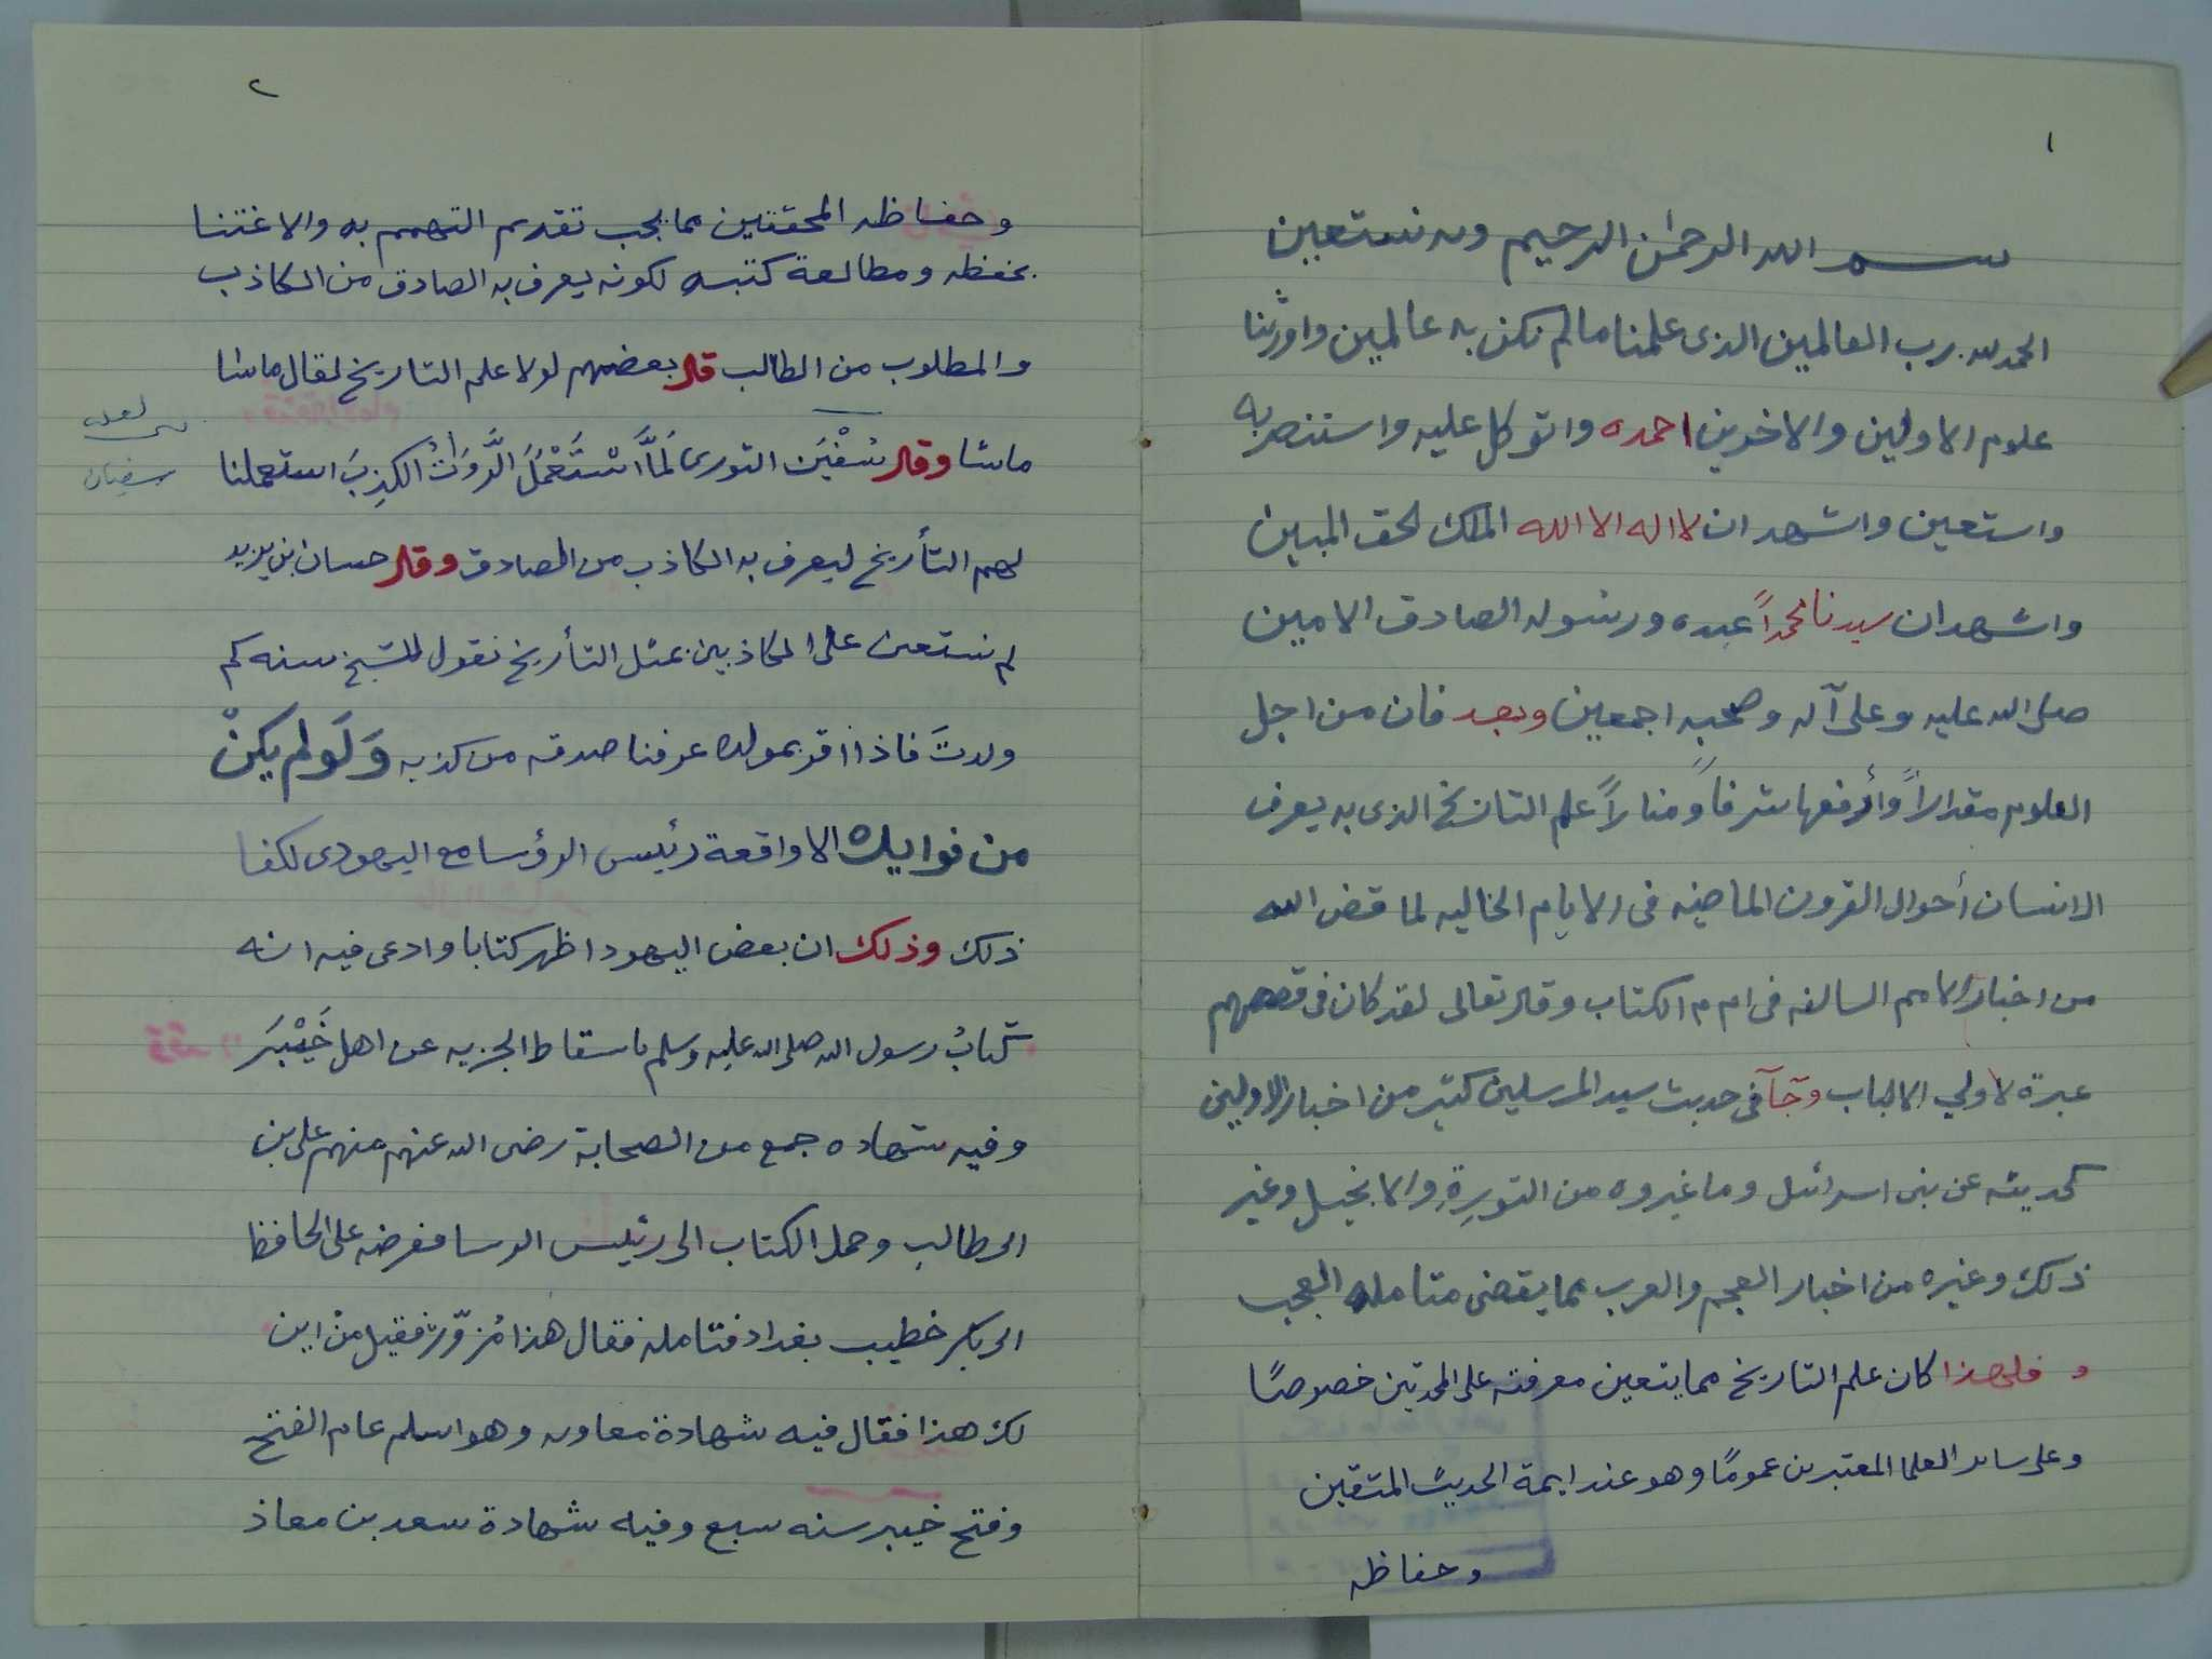 ١
بسم الله الرحمٰن الرحيم وبه نستعين
الحمد لله رب العالمين الذى علمنا مالم نكن به عالمين واورثنا
علوم الاولين والاخرين احمده واتوكل عليه واستنصر به
واستعين واشهد ان لا اله الا الله الملك الحق المبين
واشهد ان سيدنا محمداً عبده ورسوله الصادق الامين
صلى الله عليه وعلى آله وصحبه اجمعين وبعد فان من اجل
العلوم مقداراً وأرفعها شرفاً ومناراً علم التاريخ الذى به يعرف
الانسان أحوال القرون الماضيه فى الايام الخاليه لما قص الله
من اخبار الامم السالفه فى ام م الكتاب وقال تعالى لقد كان فى قصصهم
عبرة لاولي الالباب وجآ فى حديث سيد المرسلين كثير من اخبار الاولين
كحديثه عن بنى اسرائيل وما غيروه من التورية والانجيل وغير
ذلك وغيره من اخبار العجم والعرب مما يقضى متامله العجب
و فلهذا كان علم التاريخ مما يتعين معرفته على المحدثين خصوصًا
وعلى سائر العلما المعتبرين عمومًا وهو عند ايمة الحديث المتقين
وحفاظه
٢
وحفاظه المحققين مما يجب تقديم التهمم به والاغتنا
بحفظه ومطالعة كتبه لكونه يعرف به الصادق من الكاذب
والمطلوب من الطالب قال بعضهم لولا علم التاريخ لقال ماشا
ماشا وقال سُفْيَن الثورى لَمَّا اسْتَعْمَلَ الرُّوَاتُ الكِذِبَ استعملنا
لعله
سفيان
لهم التأريخ ليعرف به الكاذب من الصادق وقال حسان بن يزيد
لم نستعن على الكاذبين بمثل التأريخ نقول للشيخ سنه كم
ولدتَ فاذا اقر بمولده عرفنا صدقه من كذبه وَلَو لم يكنْ
من فوايده الا واقعة رئيس الرؤسا مع اليهودى لكفا
ذلك وذلك ان بعض اليهود اظهر كتابا وادعى فيه انه
كتابُ رسول الله صلى الله عليه وسلم باسقاط الجزيه عن اهل خَيْبَر
وفيه شهاده جمع من الصحابة رضى الله عنهم منهم على بن
ابى طالب وحمل الكتاب الى رئيس الرسا فعرضه على الحافظ
ابى بكر خطيب بغداد فتامله فقال هذا مُزوّر فقيل منْ اين
لك هذا فقال فيه شهادة معاويه وهو اسلم عام الفتح
وفتح خيبر سنه سبع وفيه شهادة سعد بن معاذ